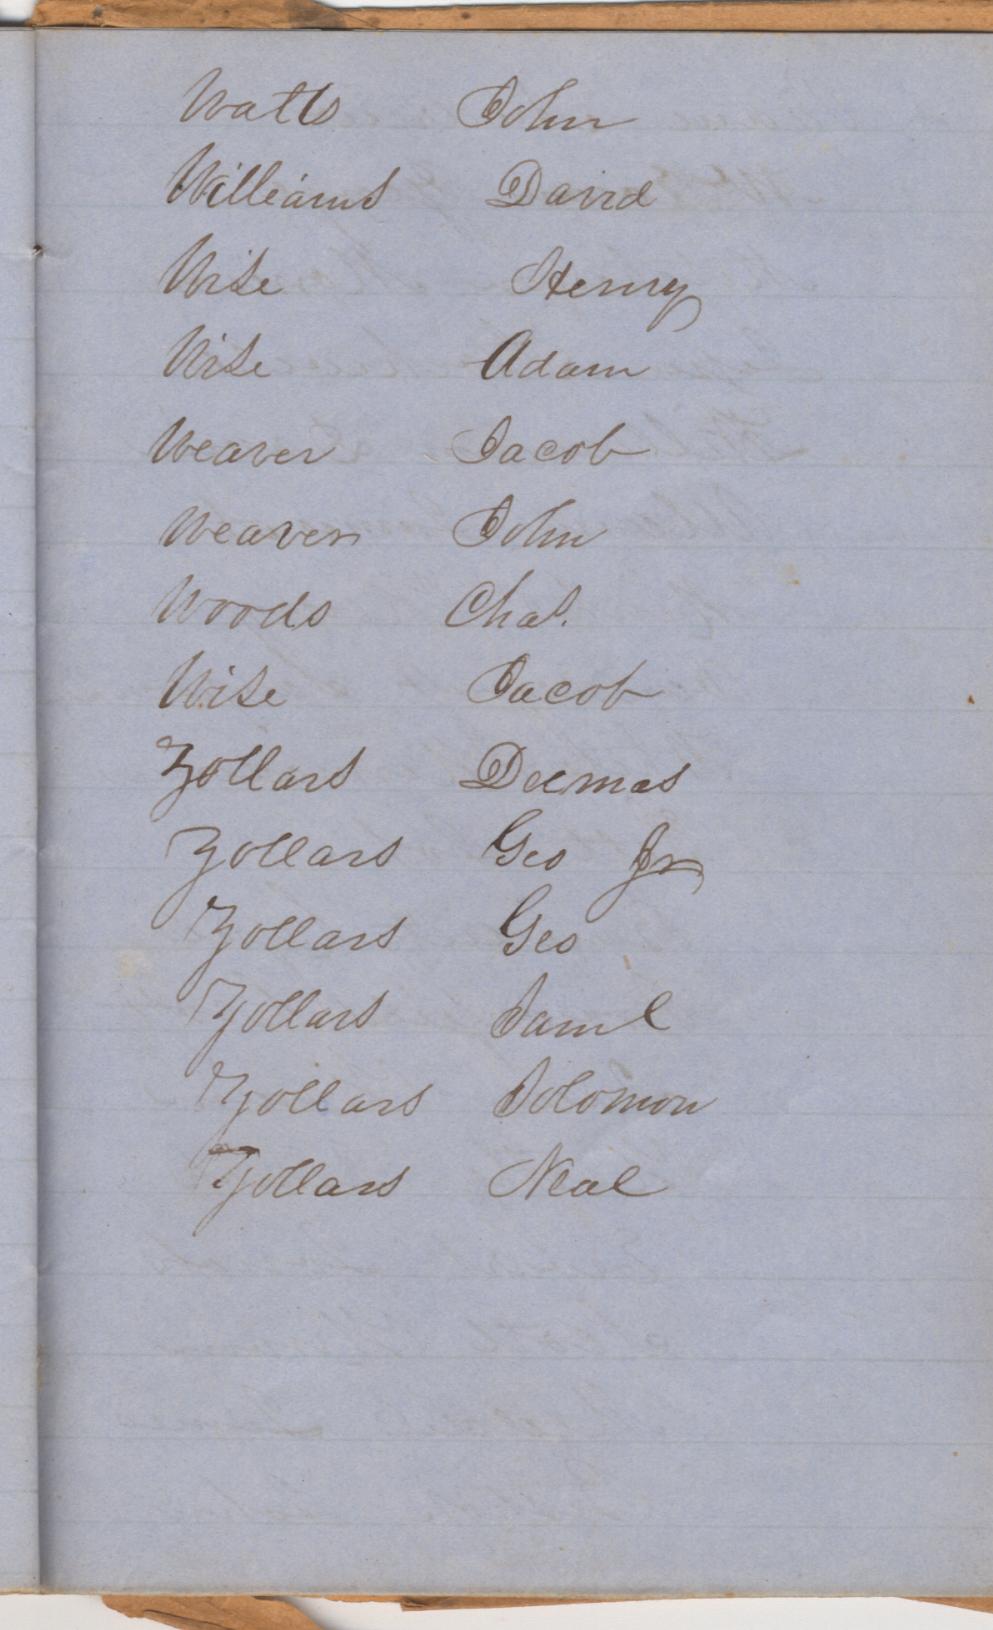 Watts John
Williams David
Wise Henry
Wise Adam
Weaver Jacob
Weaver John
Woods Chas.
Wise Jacob
Zollars Demas
Zollars Geo Jr
Zollars Geo
Zollars Saml
Zollars Solomon
Zollars Neal